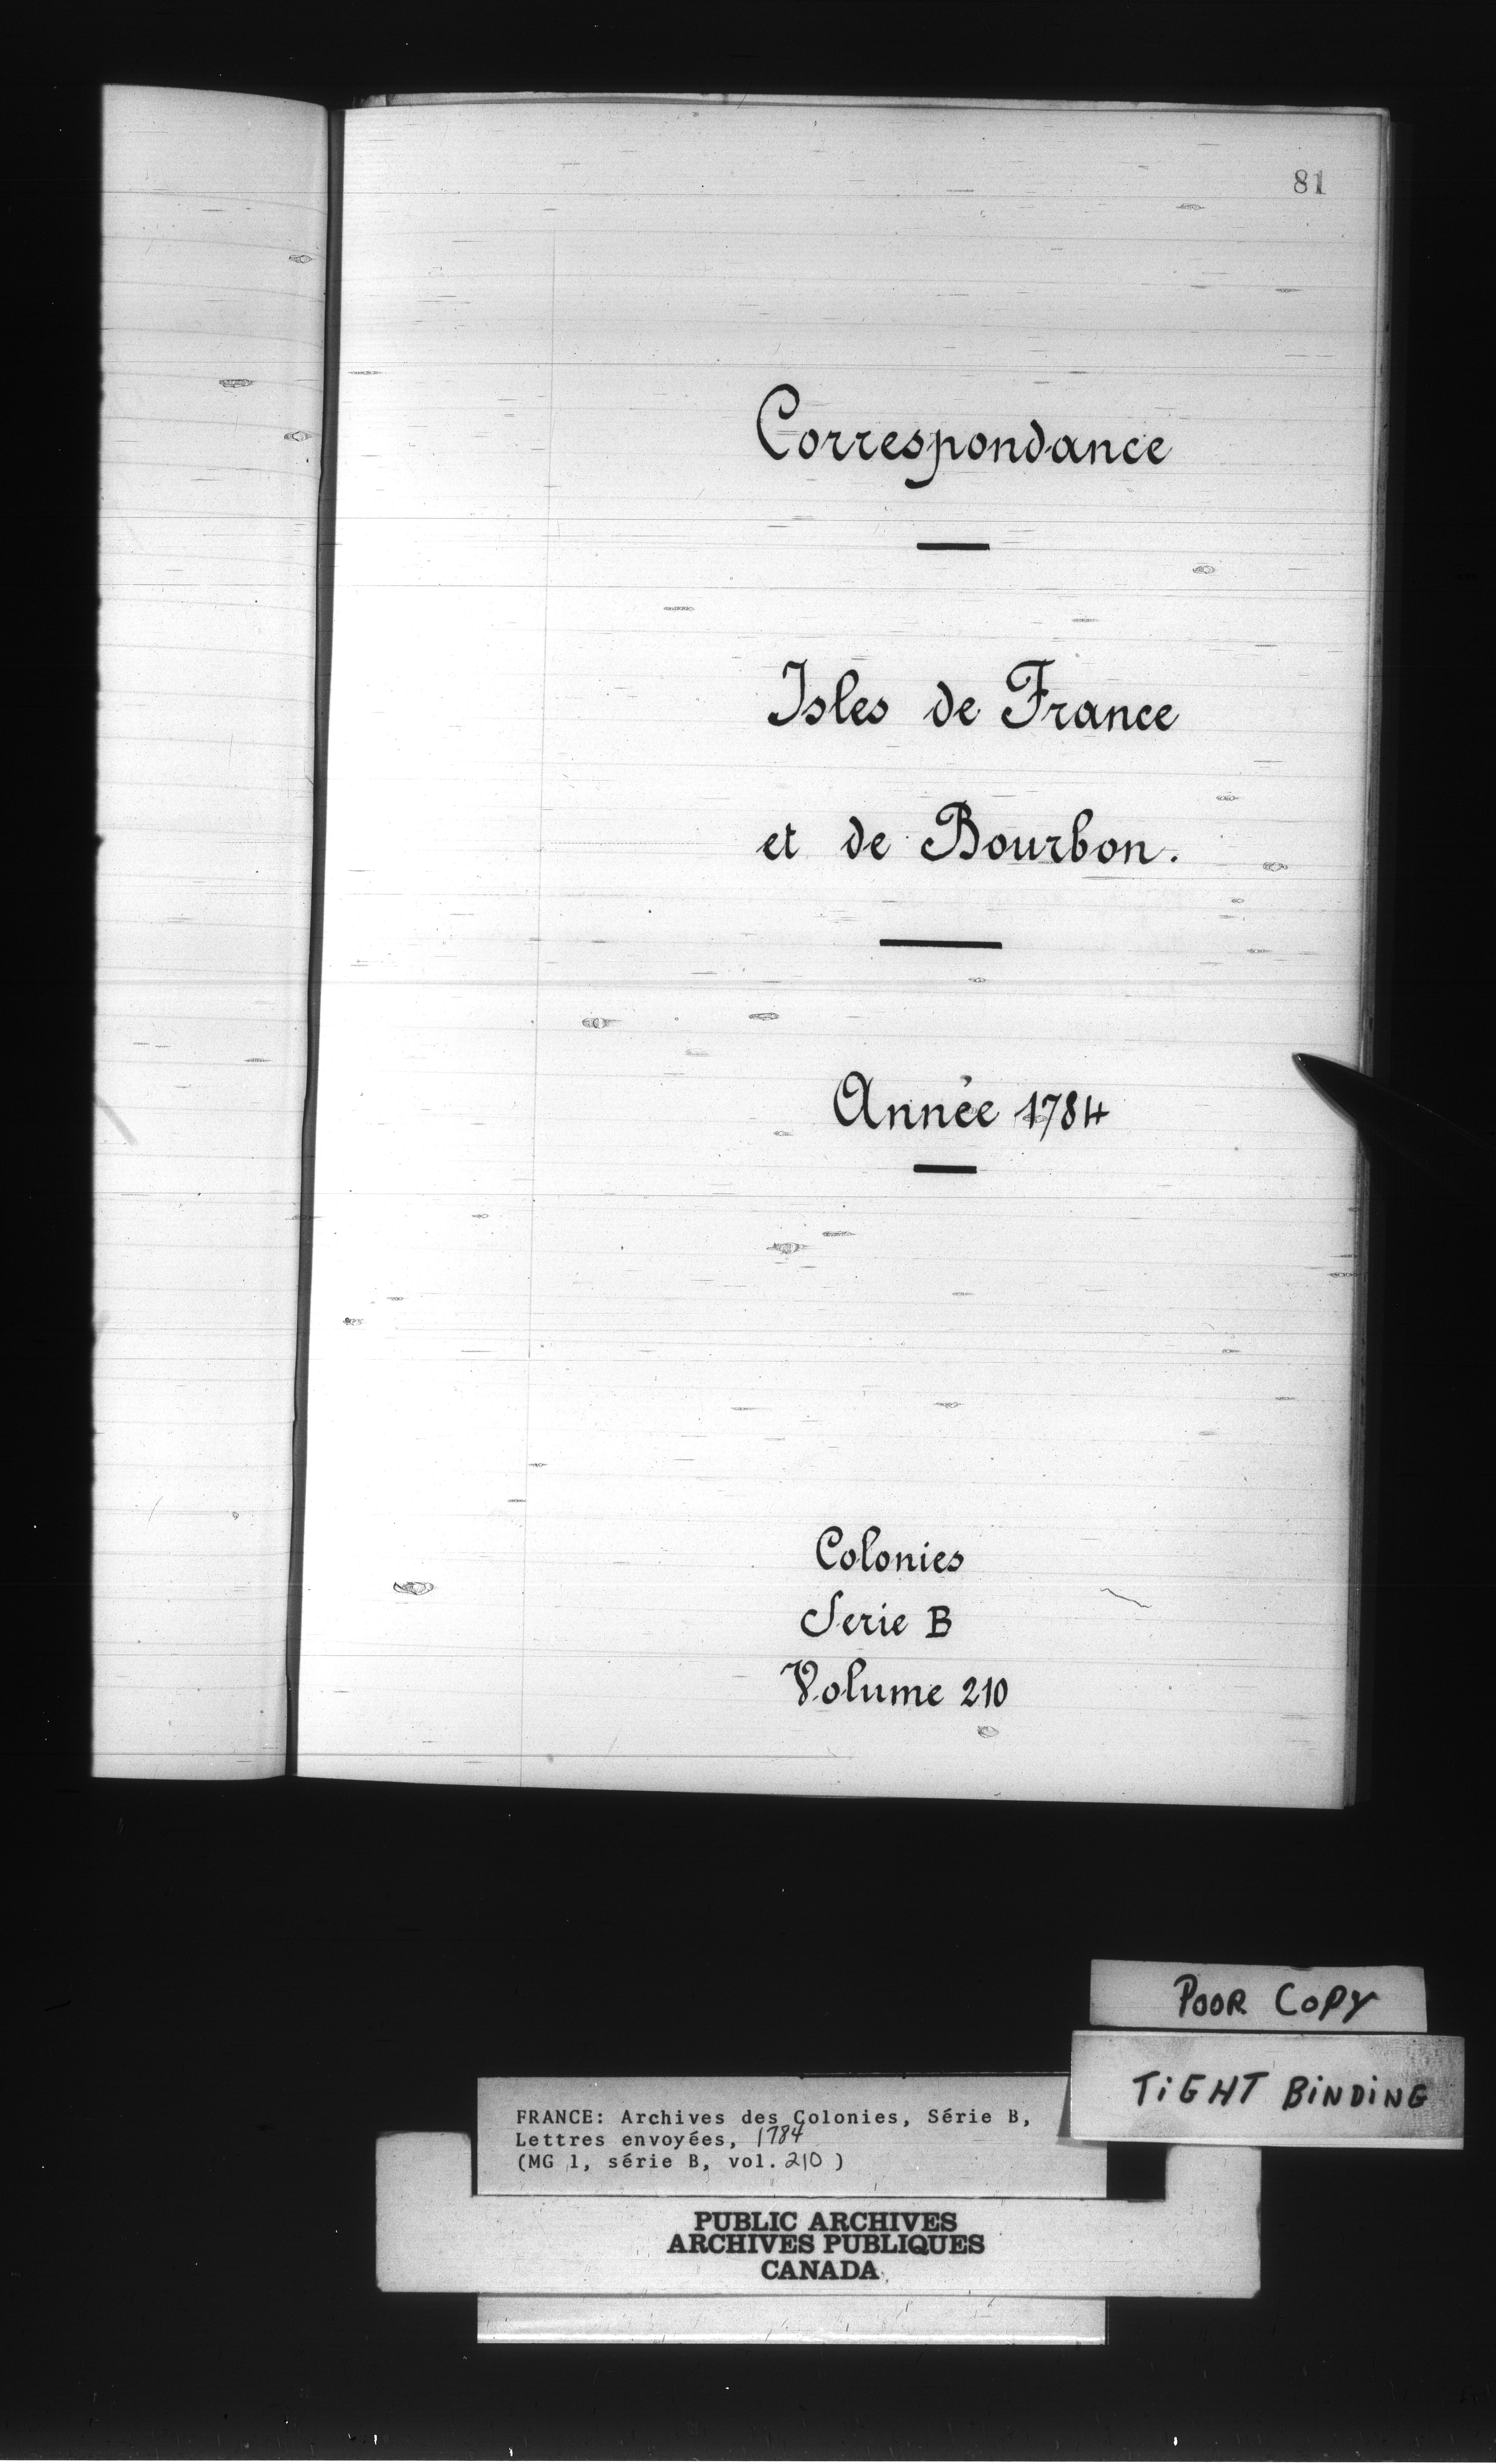 81
Correspondance
Isles de France
et de Bourbon.
Année 1784
Colonies
Serie B
Volume 210
POOR COPY
TiGHT BiNDiNG
FRANCE: Archives des Colonies, Série B,
Lettres envoyées, 1784
(MG 1, série B, vol. 210 )
PUBLIC ARCHIVES
ARCHIVES PUBLIQUES
CANADA